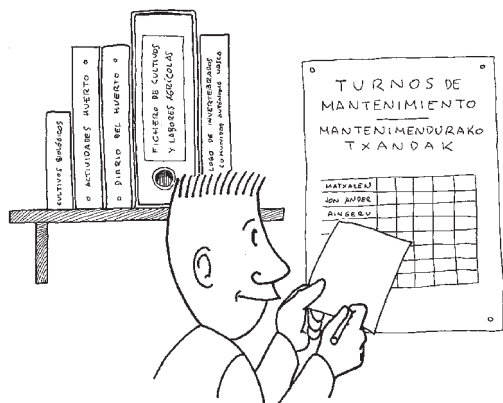 CULTIVOS BIOLÓGICOS
ACTIVIDADES HUERTO
DIARIO DEL HUERTO
FICHERO DE CULTIVOS
Y LABORES AGRÍCOLAS
LOGO DE INVERTEBRADOS
COMUNIDAD AUTÓNOMA VASCA
TURNOS DE
MANTENIMIENTO
MANTENIMENDURAKO
TXANDAK
MATXALEN
JON ANDER
AINGERU